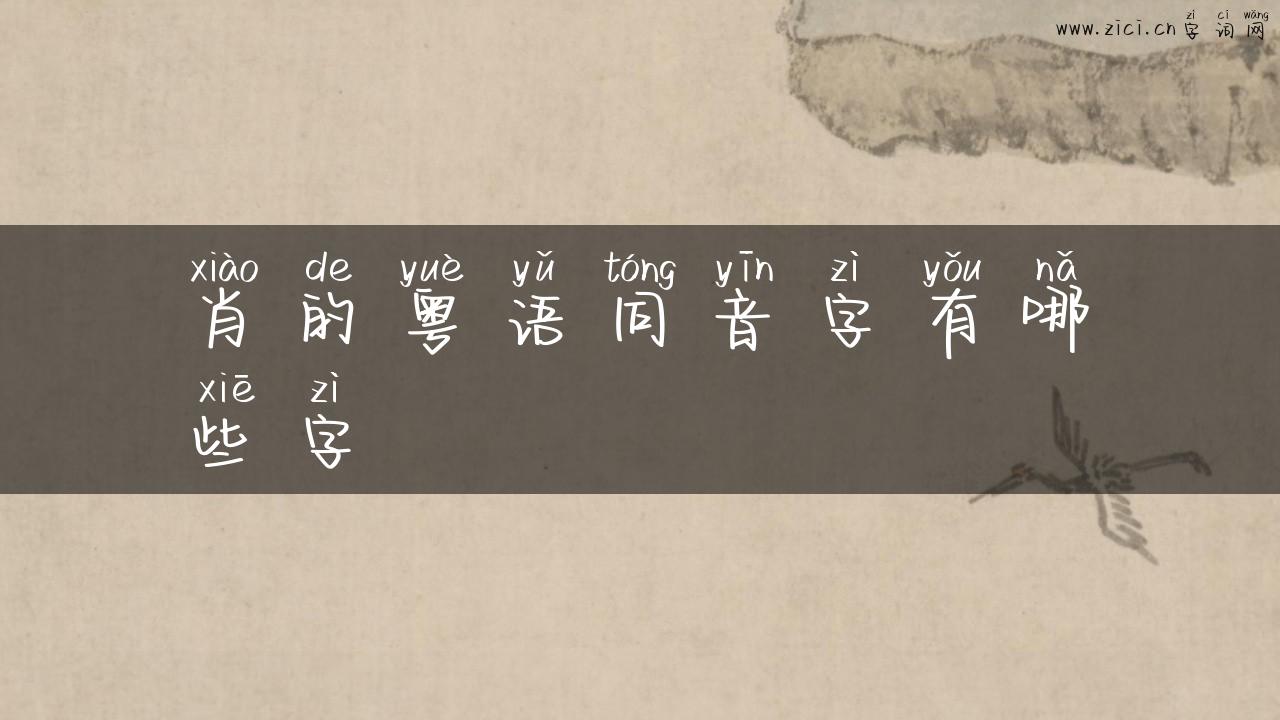 zì cí wǎng
www.zici.cn 字词网
xiào de yuè yǔ tóng yīn zì yǒu nǎ
肖的粤语同音字有哪
xiē zì
些字